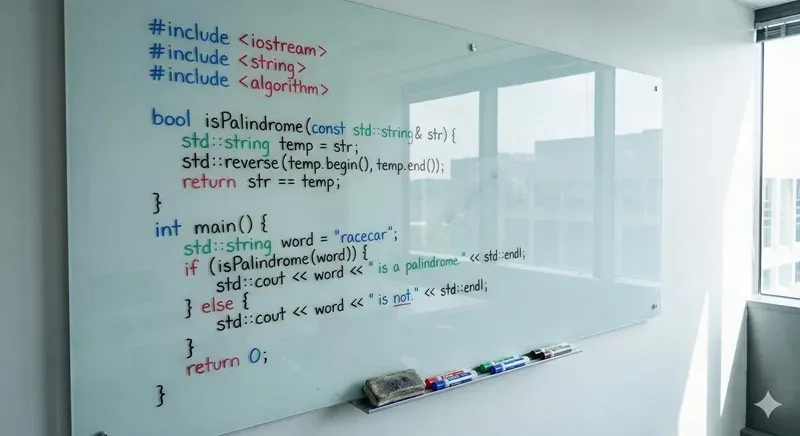 #include <iostream>
#include <string>
#include <algorithm>
bool isPalindrome(const std::string& str) {
std::string temp = str;
std::reverse(temp.begin(), temp.end());
return str == temp;
}
int main() {
std::string word = "racecar";
if (isPalindrome(word)) {
std::cout << word << " is a palindrome." << std::endl;
} else {
std::cout << word << " is not." << std::endl;
}
return 0;
}